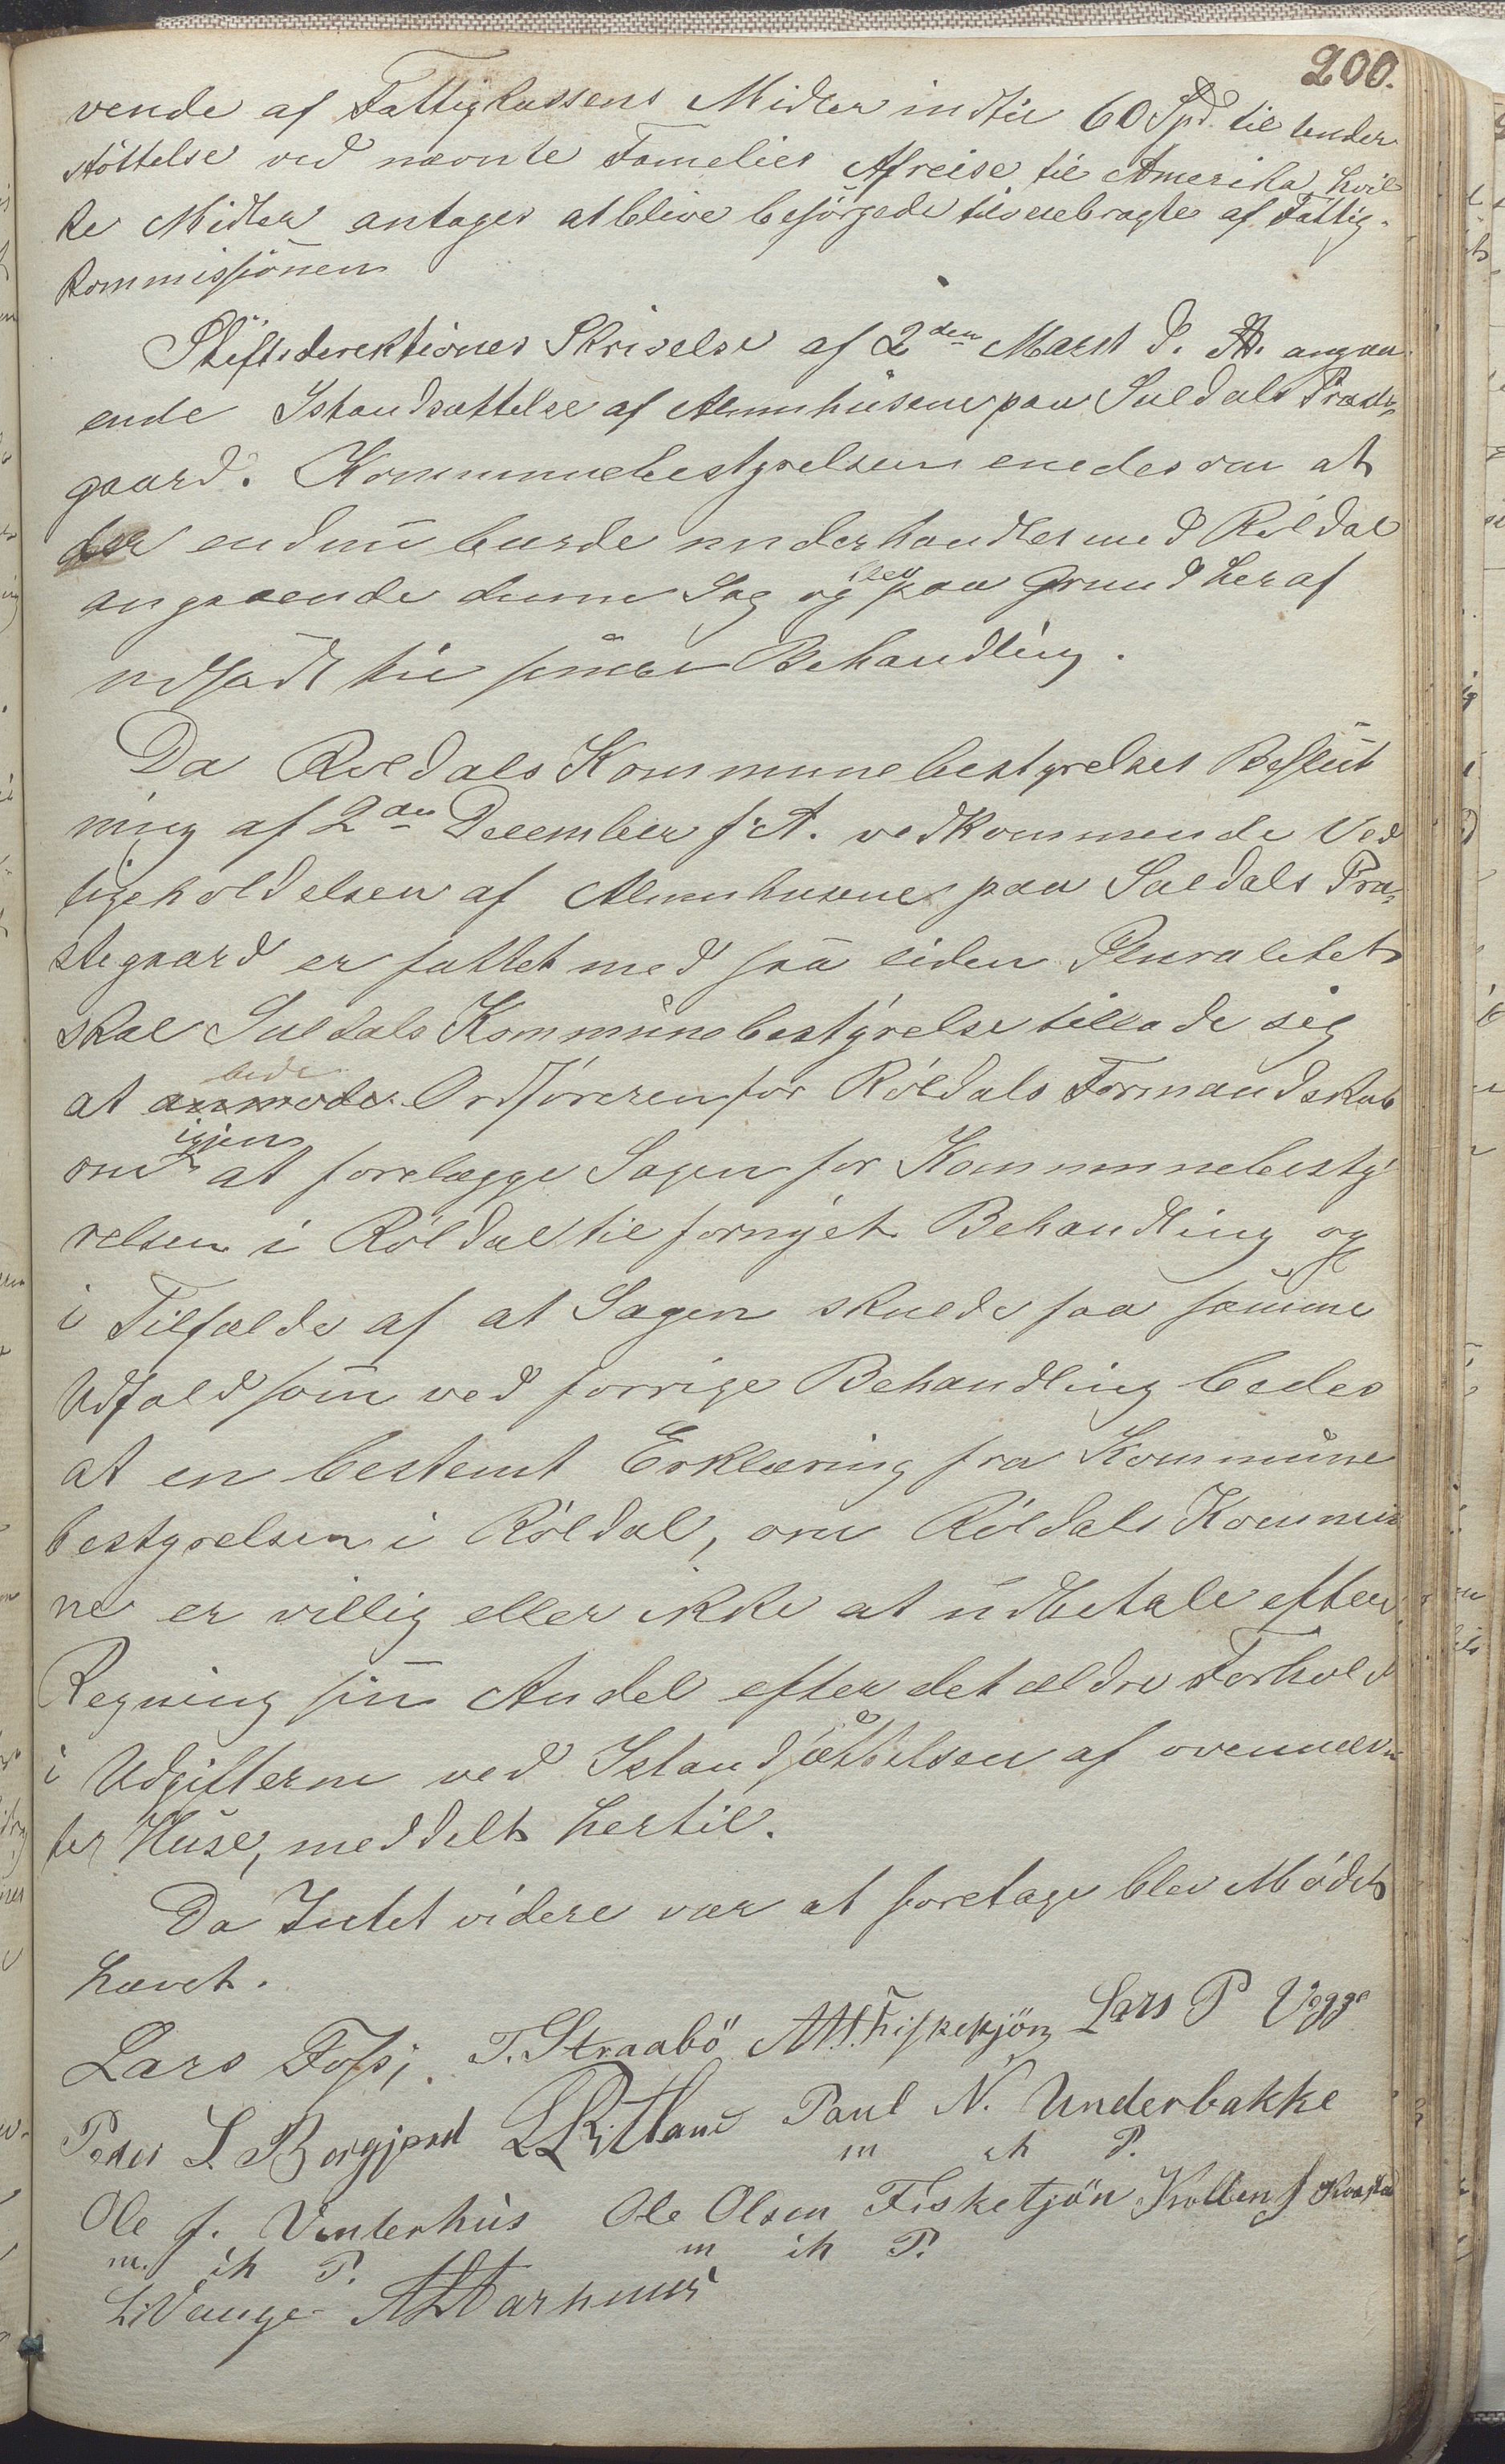 200.
vende af Fattigkassens Midler indtil 60 Spd. til Under-
støttelse ved nævnte Families Afreise til Amerika, hvil
ke Midler antages at blive besørgede tilveiebragte af Fattig-
kommissionen
Stiftsdirektionens Skrivelse af 2den Marst d. A. angaa
ende Istandsættelse af Almuhusene paa Suldals Præste
gaard. Kommunebestyrelsen enedes om at
der endnu burde underhandles med Røldal
angaaende denne Sag og blev paa Grund heraf
udsadt til senere Behandling.
Da Røldals Kommunebestyrelses Beslut
ning af 2den December f. A. vedkommende Ved
ligeholdelsen af Almuhusene paa Suldals Præ-
stegaard er fattet med saa liden Pluralitet
skal Suldals Kommunebestyrelse tillade sig
at anmode bede Ordføreren for Røldals Formandskab
om igjen at forelægge Sagen for Kommunebesty
relsen i Røldal til fornyet Behandling og
i Tilfælde af at Sagen skulde faa samme
Udfald som ved forrige Behandling bedes
at en bestemt Erklæring fra Kommune
bestyrelsen i Røldal, om Røldals Kommu
ne er villig eller ikke at udbetale efter
Regning sin Andel efter det ældre Forhold
i Udgifterne ved Istandsættelsen af ovennævn
ter Huse, meddelt hertil.
Da Intet videre var at foretage blev Mødet
hævet.
Lars Fossi. T. Straabö Fiskekjön Lars P Vegge
Peder L Bergjord L Ritland Paul N. Underbakke
m ih P.
Ole J. Vinterhus Ole Olsen Fisketjön Kolben J
m. ih P. m ih P.
L. Vange Aarhuus